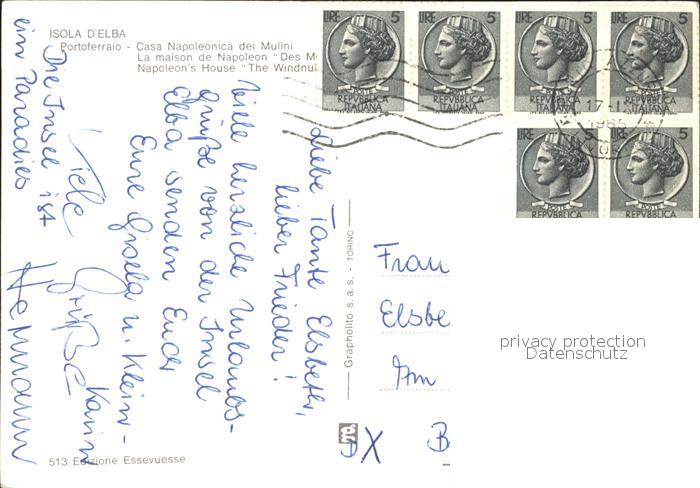 ISOLA D'ELBA
Portoferraio - Casa Napoleonica dei Mulini
La maison de Napoleon "Des M
Napoleon's House "The Windmil
LIRE 5
LIRE 5
LIRE 5
LIRE 5
POSTE
REPVBBLICA
ITALIANA
POSTE
REPVBBLICA
ITALIANA
POSTE
REPVBBLICA
ITALIANA
POSTE
REPVBBLICA
ITALIANA
LIRE 5
LIRE 5
POSTE
REPVBBLICA
POSTE
REPVBBLICA
17-
1965
Liebe Tante Elsbeth,
lieber Frieder!
Viele herzliche Urlaubs-
grüße von der Insel
Elba senden Euch
Eure Gisela u. Klein-
Karin
Viele Grüße
Hermann
Die Insel ist
ein Paradies
Grapholito s.a.s. - TORINO
Frau
Elsbe
Am
B
D X
513 Edizione Essevuesse
privacy protection
Datenschutz